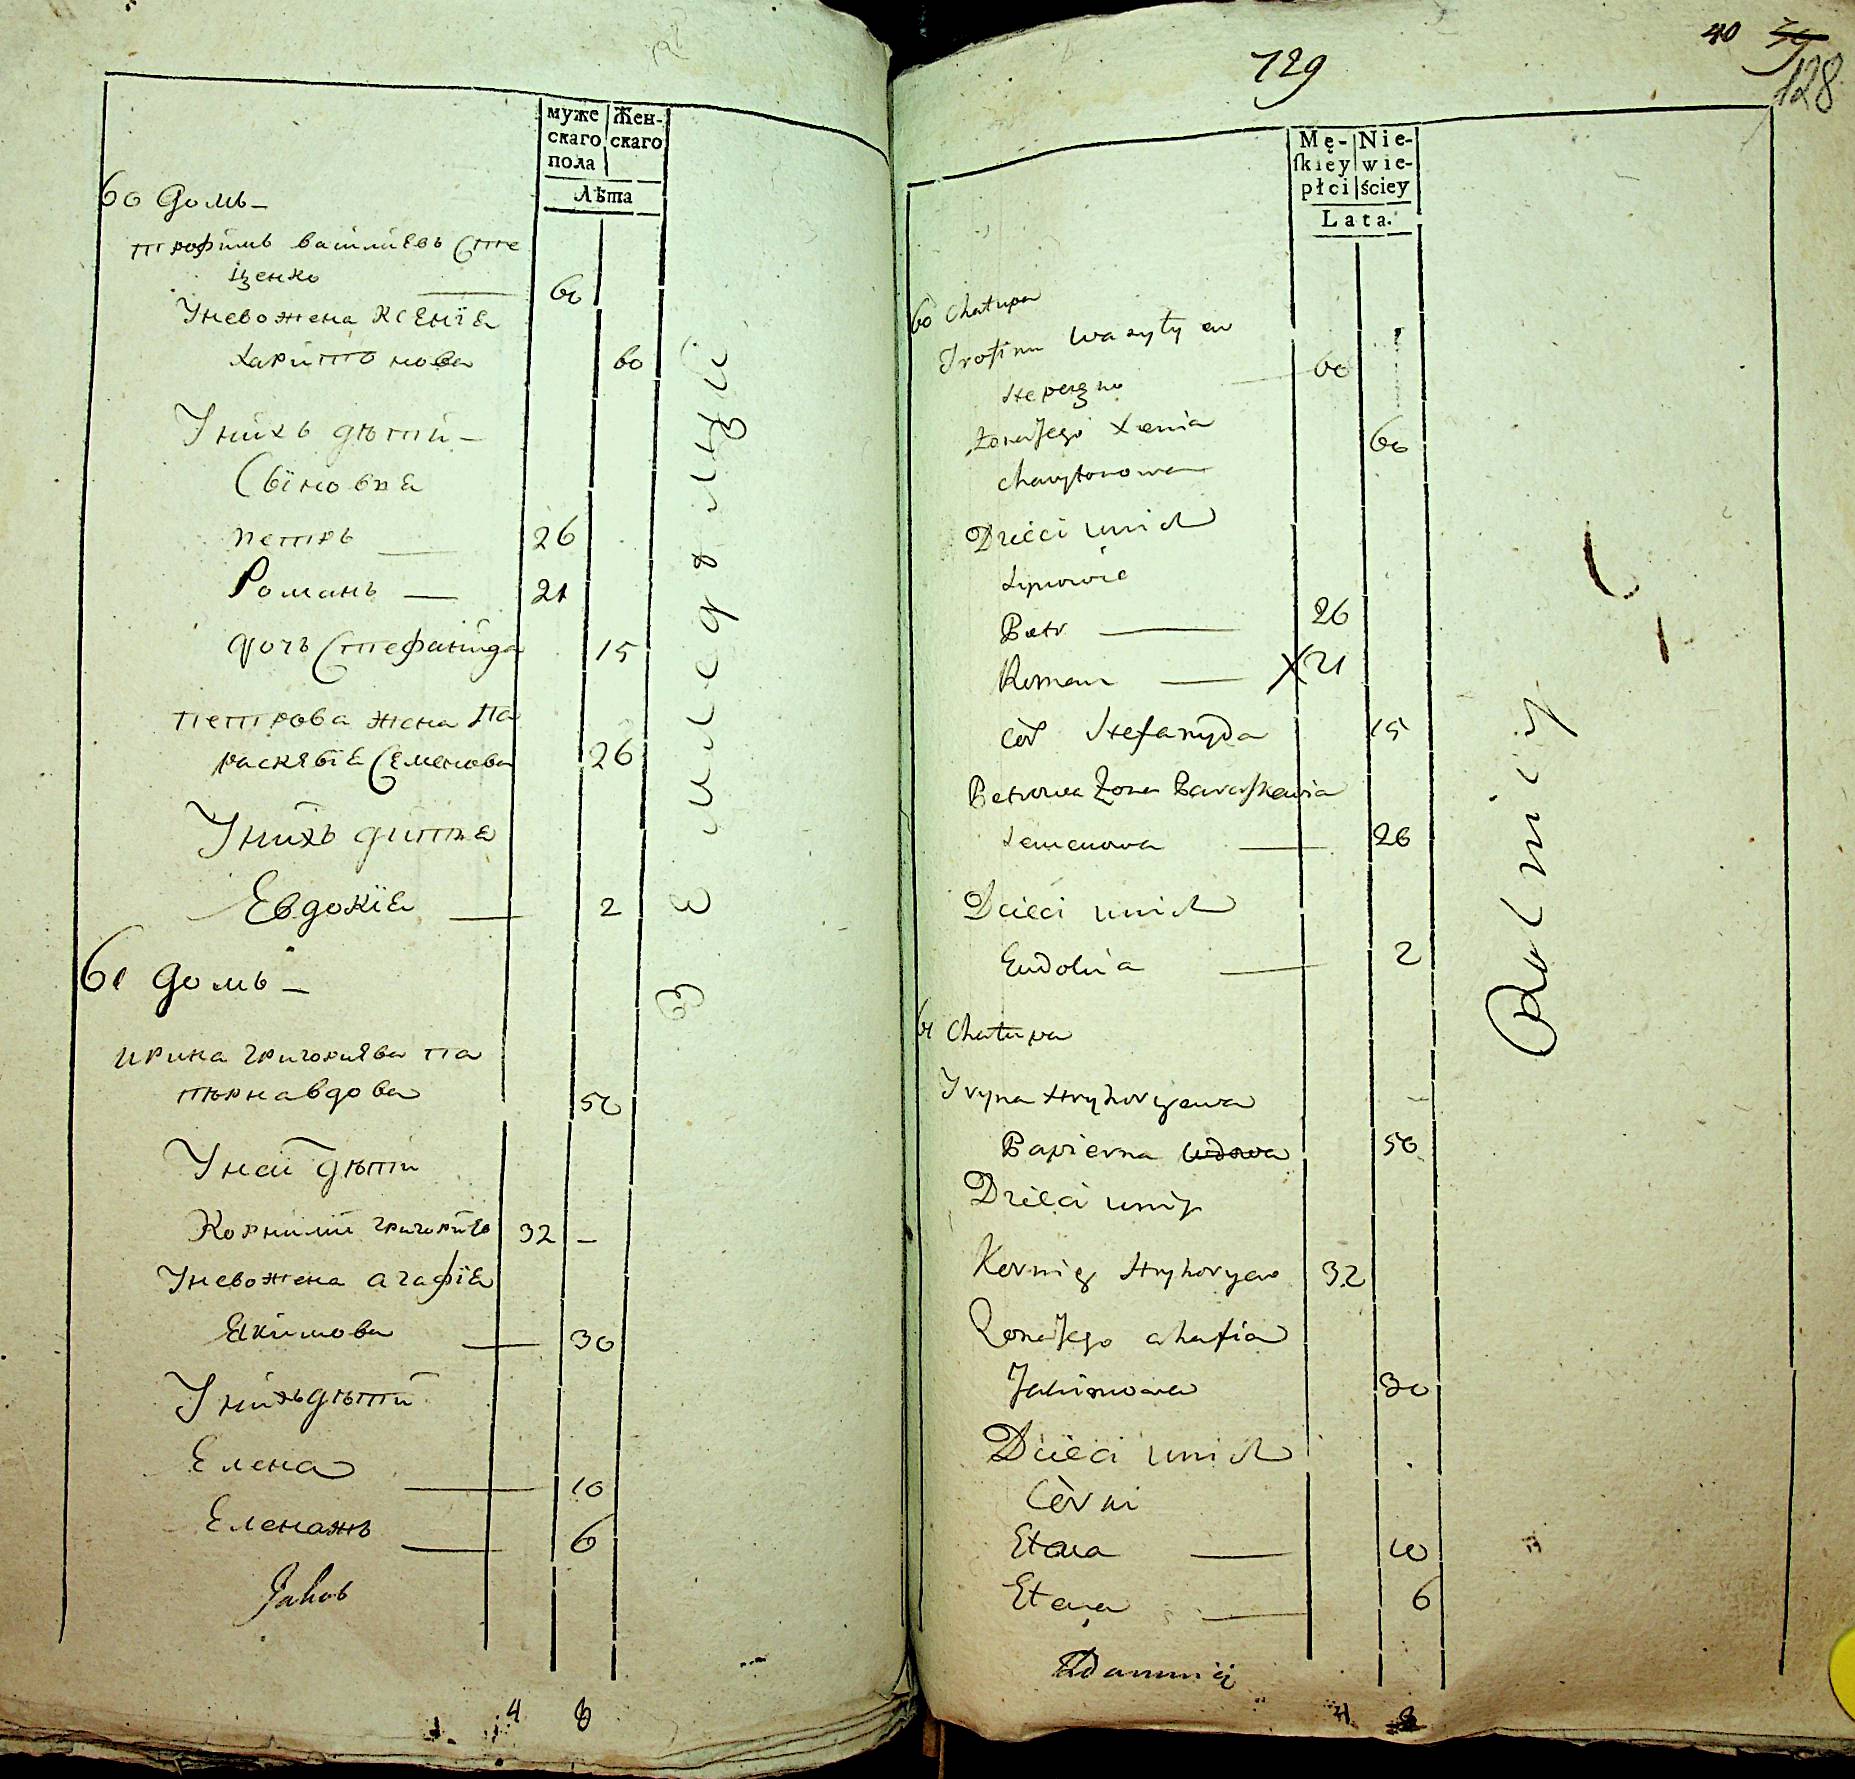 муже скаго пола
Жен- скаго
Лѣта
60 домъ
трофимъ василиевъ Сте
ценко 60
У нево жена ксенїя
харитонова 60
У нихъ дѣти
Сїновья
петръ 26
Романъ 21
дочъ Стефанида 15
петрова жена Па
раскевїя Семенова 26
У нихъ дитя
Евдокїя 2
61 домъ
ирина григориева па
перна вдова 50
У ней дѣти
Корнилий григориевъ 32 –
У нево жена агафїя
Якимова 30
У нихъ дѣти
Елена 10
Елена жъ 6
Jakob
4 8
Земледѣлцы
129
40 39
128
Mę- skiey płci
Nie- wie- ściey
Lata.
60 Chałupa
Trofim Wasyly ew
Stepczenko 60
Zona Jego Xenia 60
Charytonowa
Dzieci u nich
Synowie
Petr 26
Roman X 21
cór Stefanyda 15
Petrowa Zona Paraskewia
Semenowa 26
Dzieci u nich
Eudokia 2
61 Chałupa
Iryna Hryhoryewa
Papierna wdowa 50
Dzieci u niy
Korniy Hryhoryew 32
Zona Jego Ahafia
Jakimowa 30
Dzieci u nich
Córki
Elena 10
Elena 6
4 8
Rolniсy